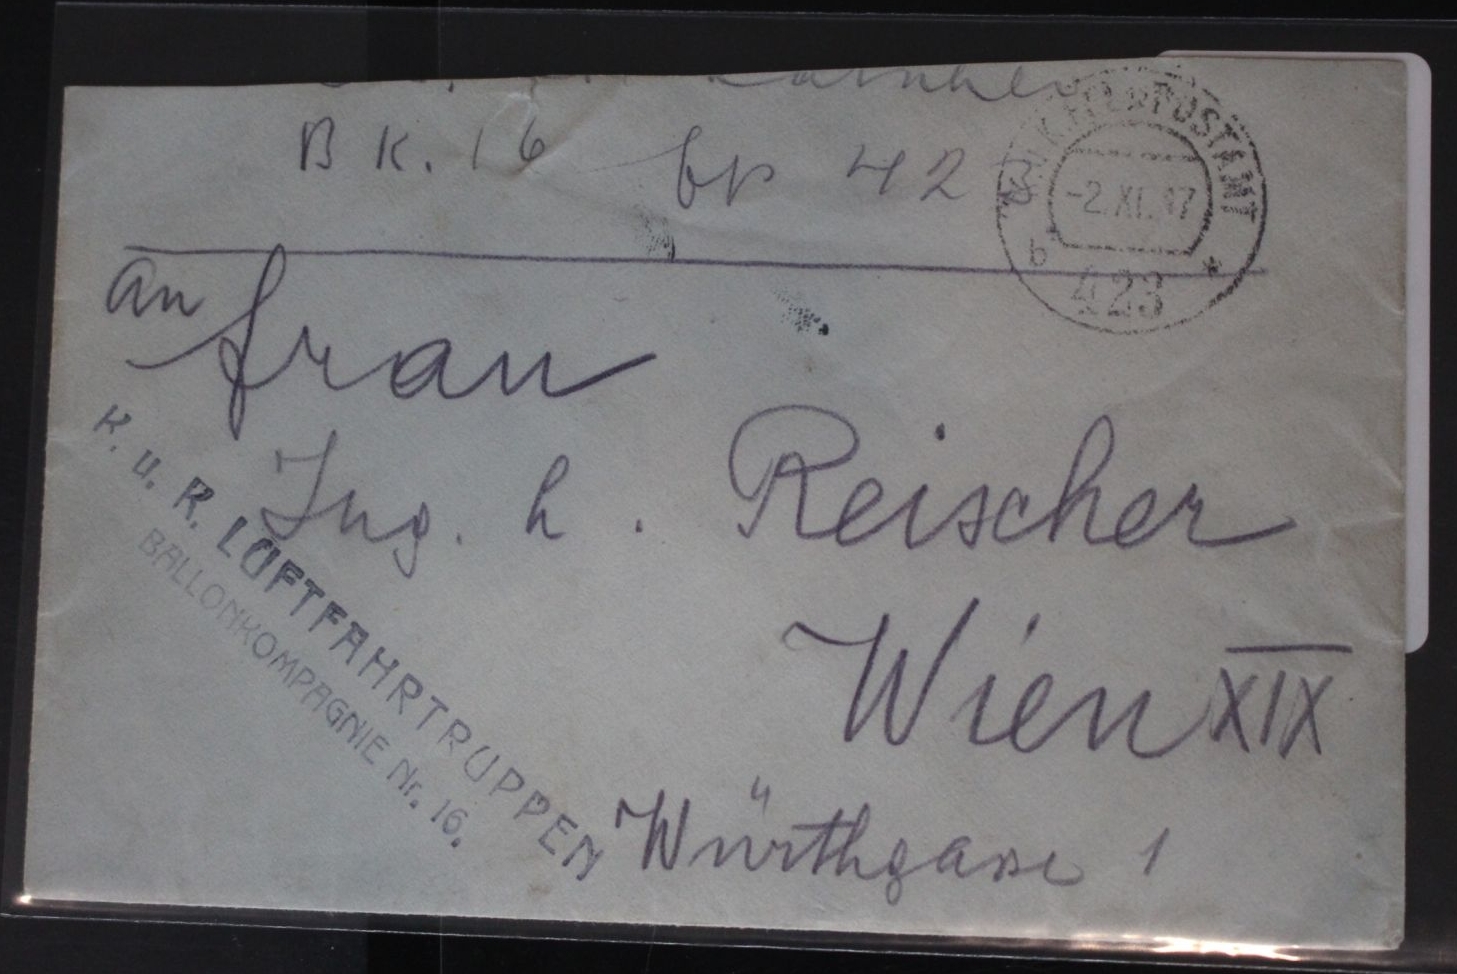 B K. 16 fp 42
K.u.K. FELDPOSTAMT
-2.XI.17
b *
423
an Frau
Ing. h. Reischer
Wien XIX
Würthgasse 1
K. u. K. LUFTFAHRTRUPPEN
BALLONKOMPAGNIE Nr. 16.